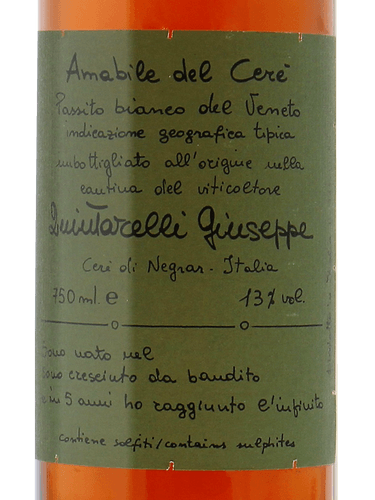 Amabile del Cerè
Passito bianco del Veneto
indicazione geografica tipica
imbottigliato all'origine nella
cantina del viticoltore
Quintarelli Giuseppe
Cerè di Negrar - Italia
750 ml. e 13% vol.
Sono nato nel
sono cresciuto da bandito
e in 5 anni ho raggiunto l'infinito
contiene solfiti/contains sulphites